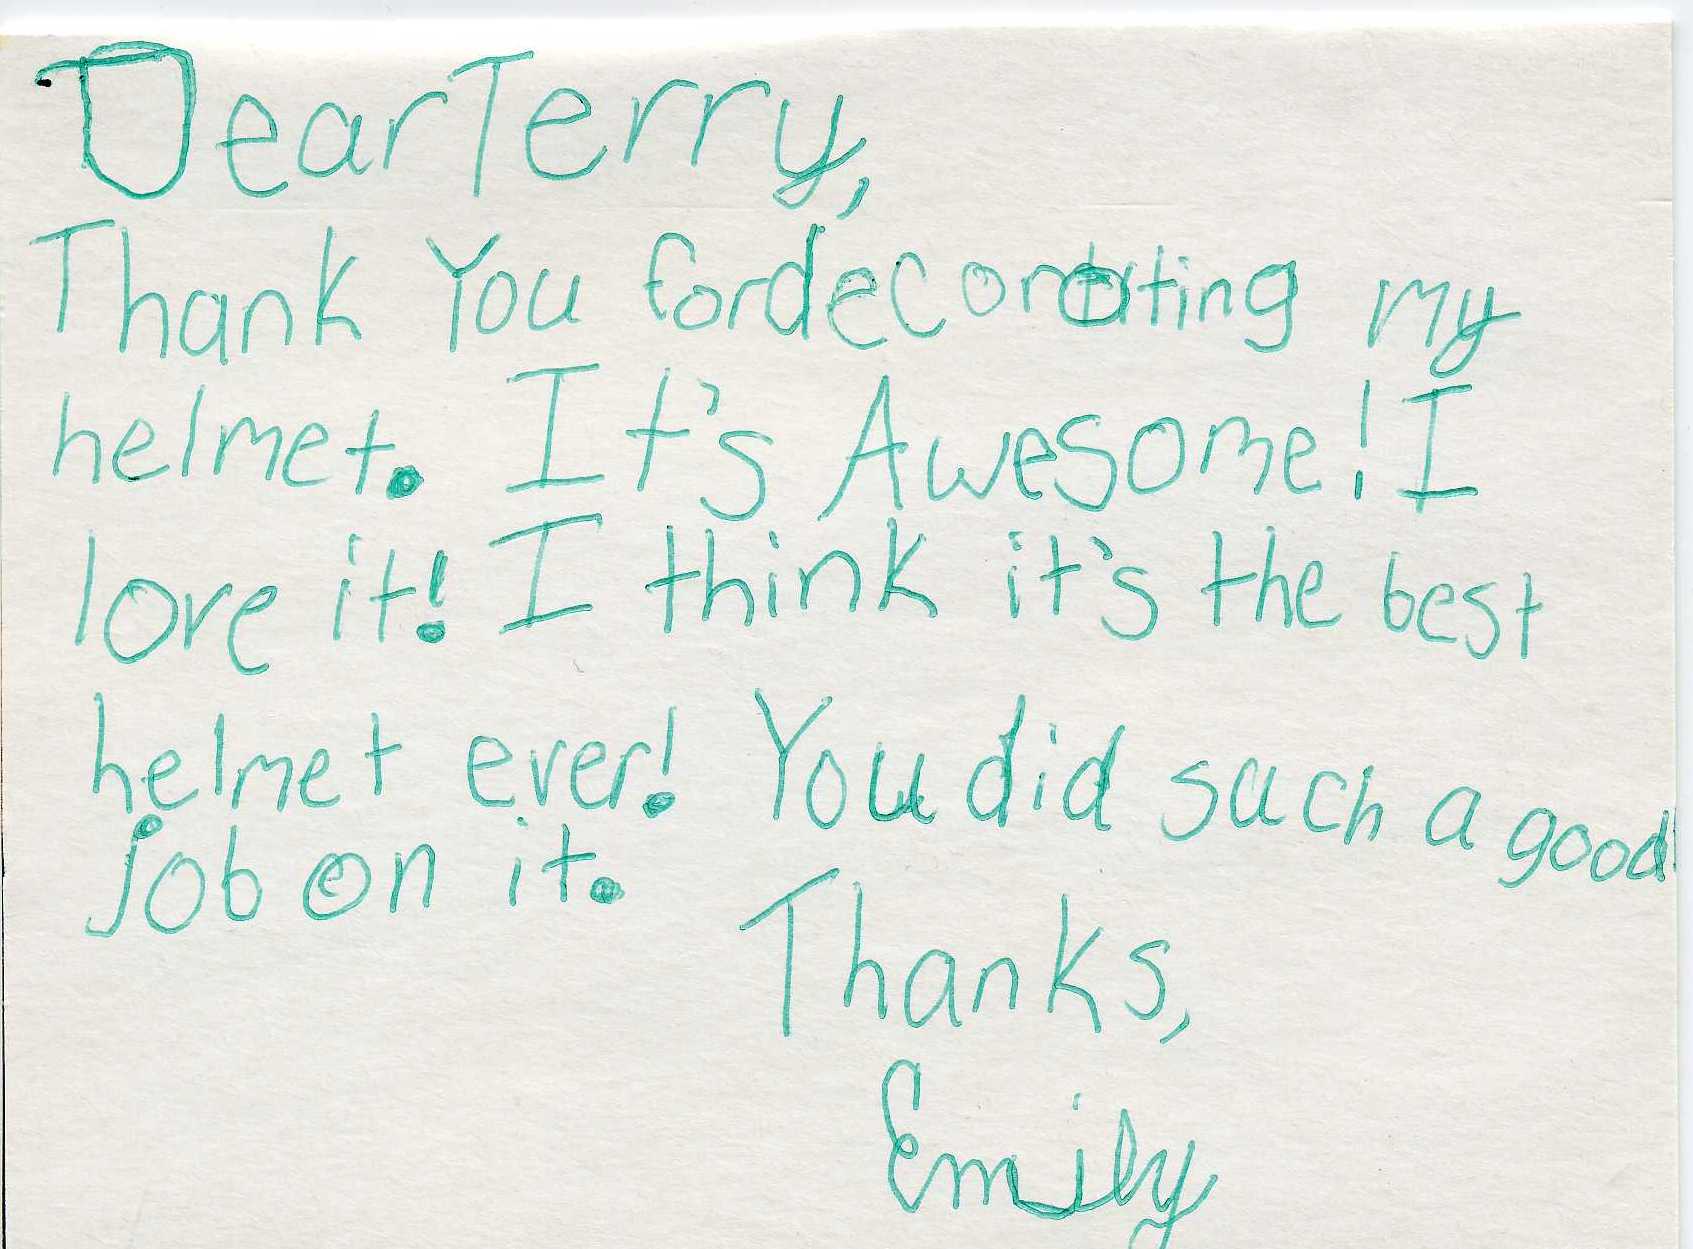 Dear Terry,
Thank You for decorating my
helmet. It's Awesome! I
love it! I think it's the best
helmet ever! You did such a good
job on it.
Thanks,
Emily